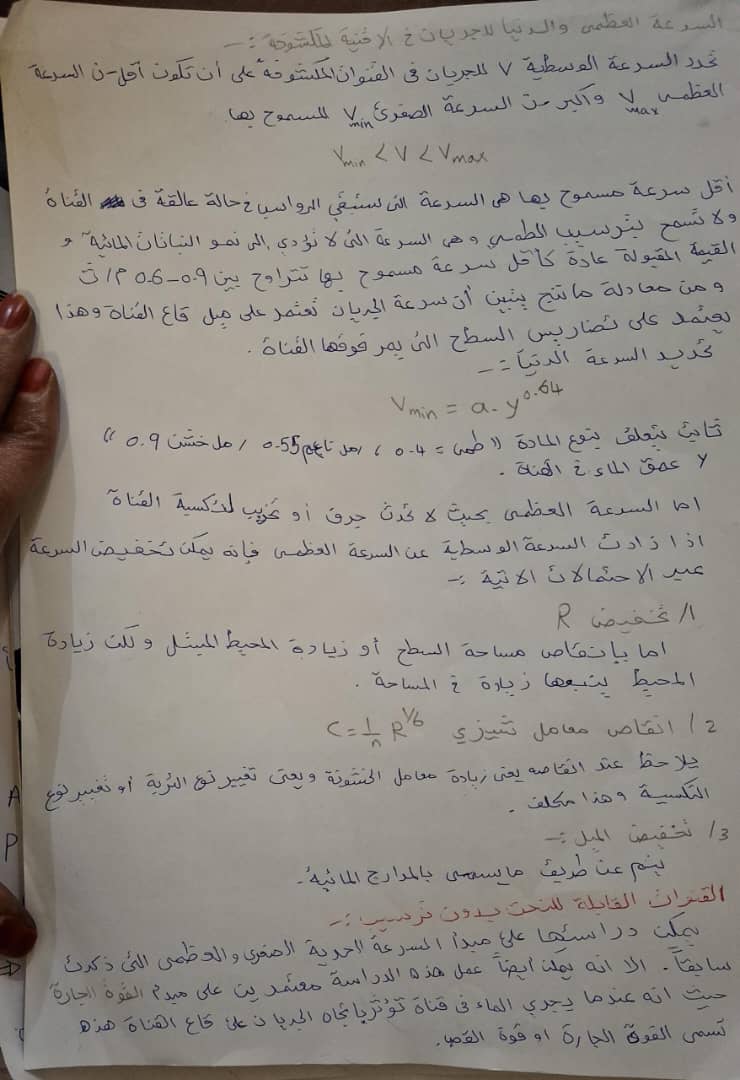 السرعة العظمى والدنيا للجريان في الاقنية المكشوفة :-
تحدد السرعة الوسطية V للجريان في القنوات المكشوفة على أن تكون أقل من السرعة
العظمى Vmax وأكبر من السرعة الصغرى Vmin المسموح بها.
Vmin < V < Vmax
أقل سرعة مسموح بها هي السرعة التي ستبقي الرواسب في حالة عالقة في القناة
ولا تسمح بترسيب الطمي وهي السرعة التي لا تؤدي إلى نمو النباتات المائية و
القيمة المقبولة عادة كأقل سرعة مسموح بها تتراوح بين 0.6-0.9 م/ث
ومن معادلة ماننج يتبين أن سرعة الجريان تعتمد على ميل قاع القناة وهذا
يعتمد على تضاريس السطح التي يمر فوقها القناة.
تحديد السرعة الدنيا :-
Vmin = a. y^0.64
ثابت يتعلق بنوع المادة (( طمي = 0.4 / رمل ناعم 0.55 / رمل خشن 0.9 ))
y عمق الماء في القناة.
اما السرعة العظمى بحيث لا تحدث جرف أو تخريب لتكسية القناة
اذا زادت السرعة الوسطية عن السرعة العظمى فإنه يمكن تخفيض السرعة
عبر الاحتمالات الاتية :-
1/ تخفيض R
اما بإنقاص مساحة السطح أو زيادة المحيط المبتل ولكن زيادة
المحيط يتبعها زيادة في المساحة.
2/ انقاص معامل تشيزي C = 1/n R^1/6
يلاحظ عند انقاصه يعني زيادة معامل الخشونة ويعني تغيير نوع التربة أو تغيير نوع
التكسية وهذا مكلف.
3/ تخفيض الميل :-
يتم عن طريق مايسمى بالمدارج المائية.
القنوات القابلة للنحت بدون ترسيب :-
يمكن دراستها على مبدأ السرعة الحدية الصغرى والعظمى التي ذكرت
سابقاً. الا انه يمكن أيضاً عمل هذه الدراسة معتمدين على مبدأ القوة الجارة
حيث انه عندما يجري الماء في قناة تؤثر باتجاه الجريان على قاع القناة هذه
تسمى القوة الجارة او قوة القص.
A
P